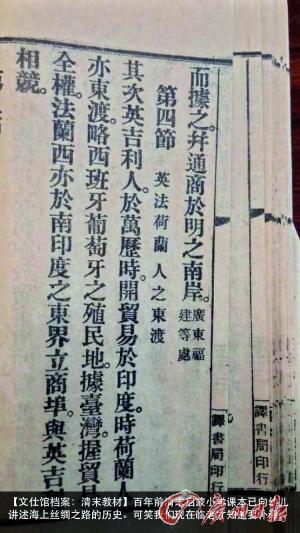 譯書局印行
譯書局印行
而據之。并通商於明之南岸。廣東福建等處
第四節 英法荷蘭人之東渡
其次英吉利人。於萬歷時。開貿易於印度。時荷蘭人
亦東渡。略西班牙葡萄牙之殖民地。據臺灣。握貿
全權。法蘭西亦於南印度之東界立商埠。與英吉
相競。
【文仕馆档案：清末教材】百年前清末启蒙小学课本已向幼儿
讲述海上丝绸之路的历史。可笑我们现在临老才知还要补课